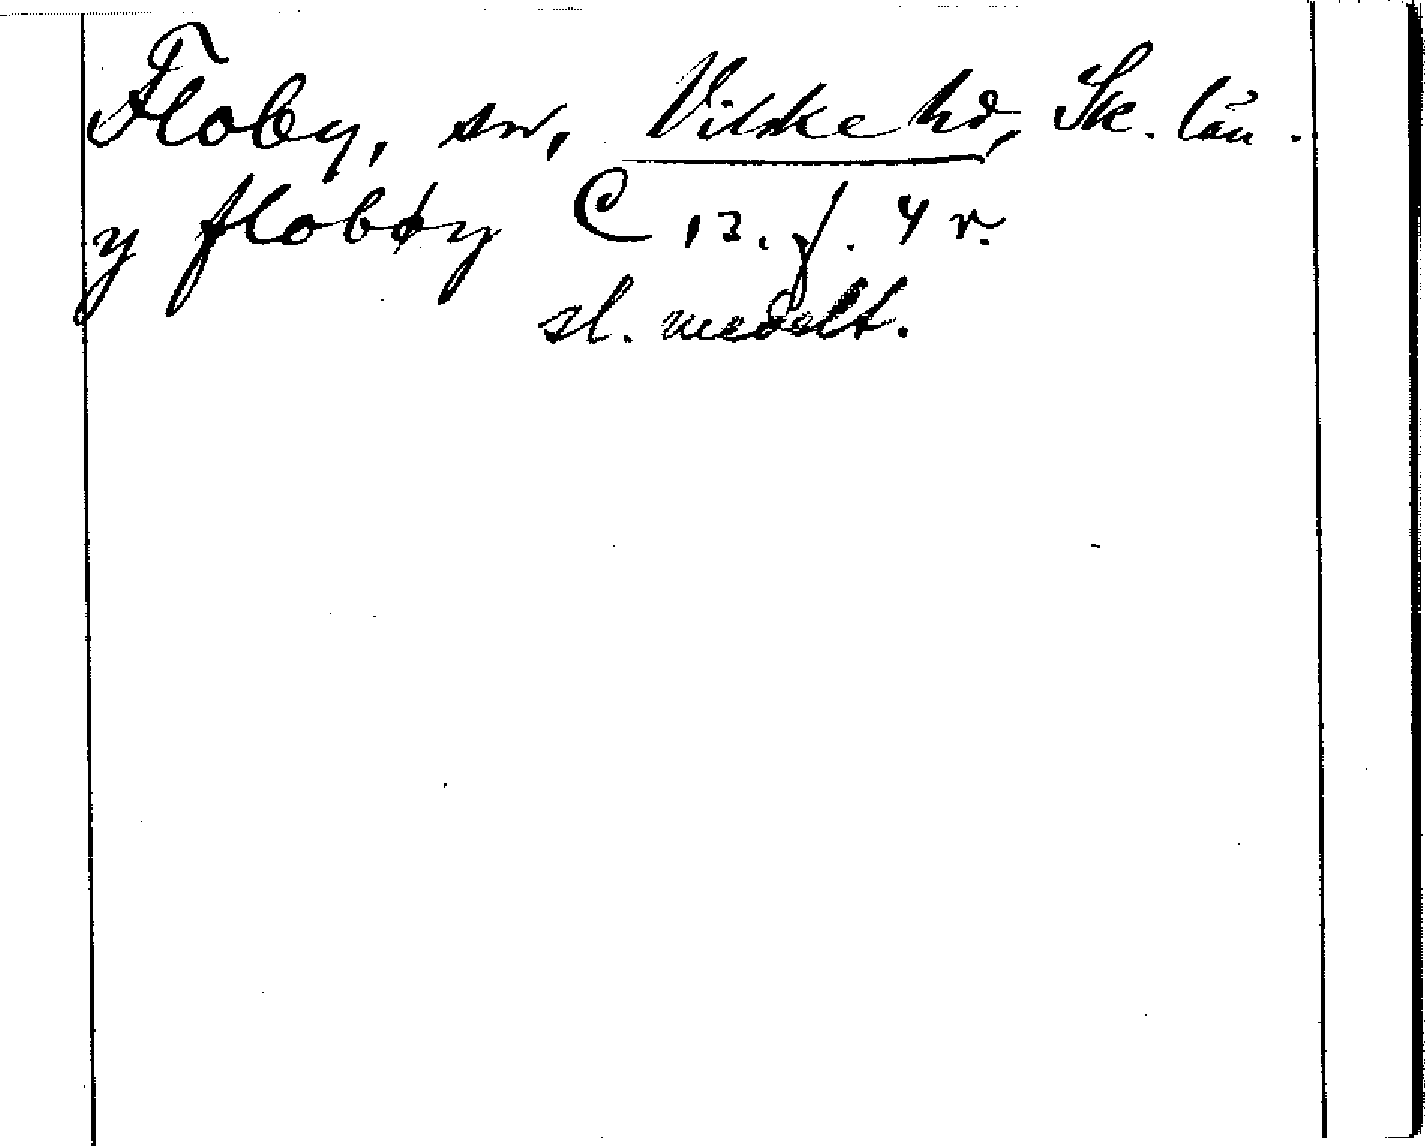 Floby, sn, Vilske hd, Sk. län.
y flobøy C 12. f. 4 r.
sl. medelt.